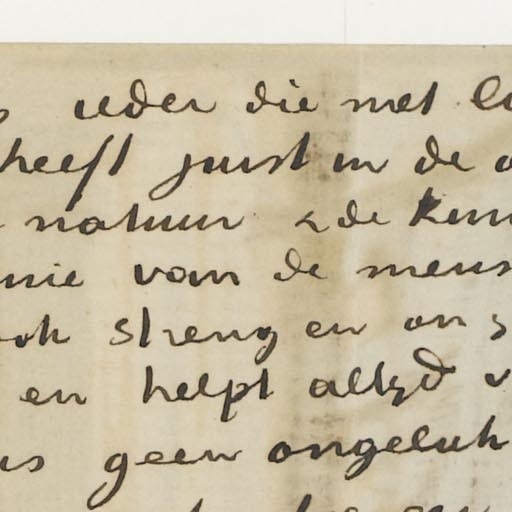 ieder die met
heeft juist in de
natuur & de
nie van de mens
ook streng en on
en helpt altyd v
is geen ongeluk